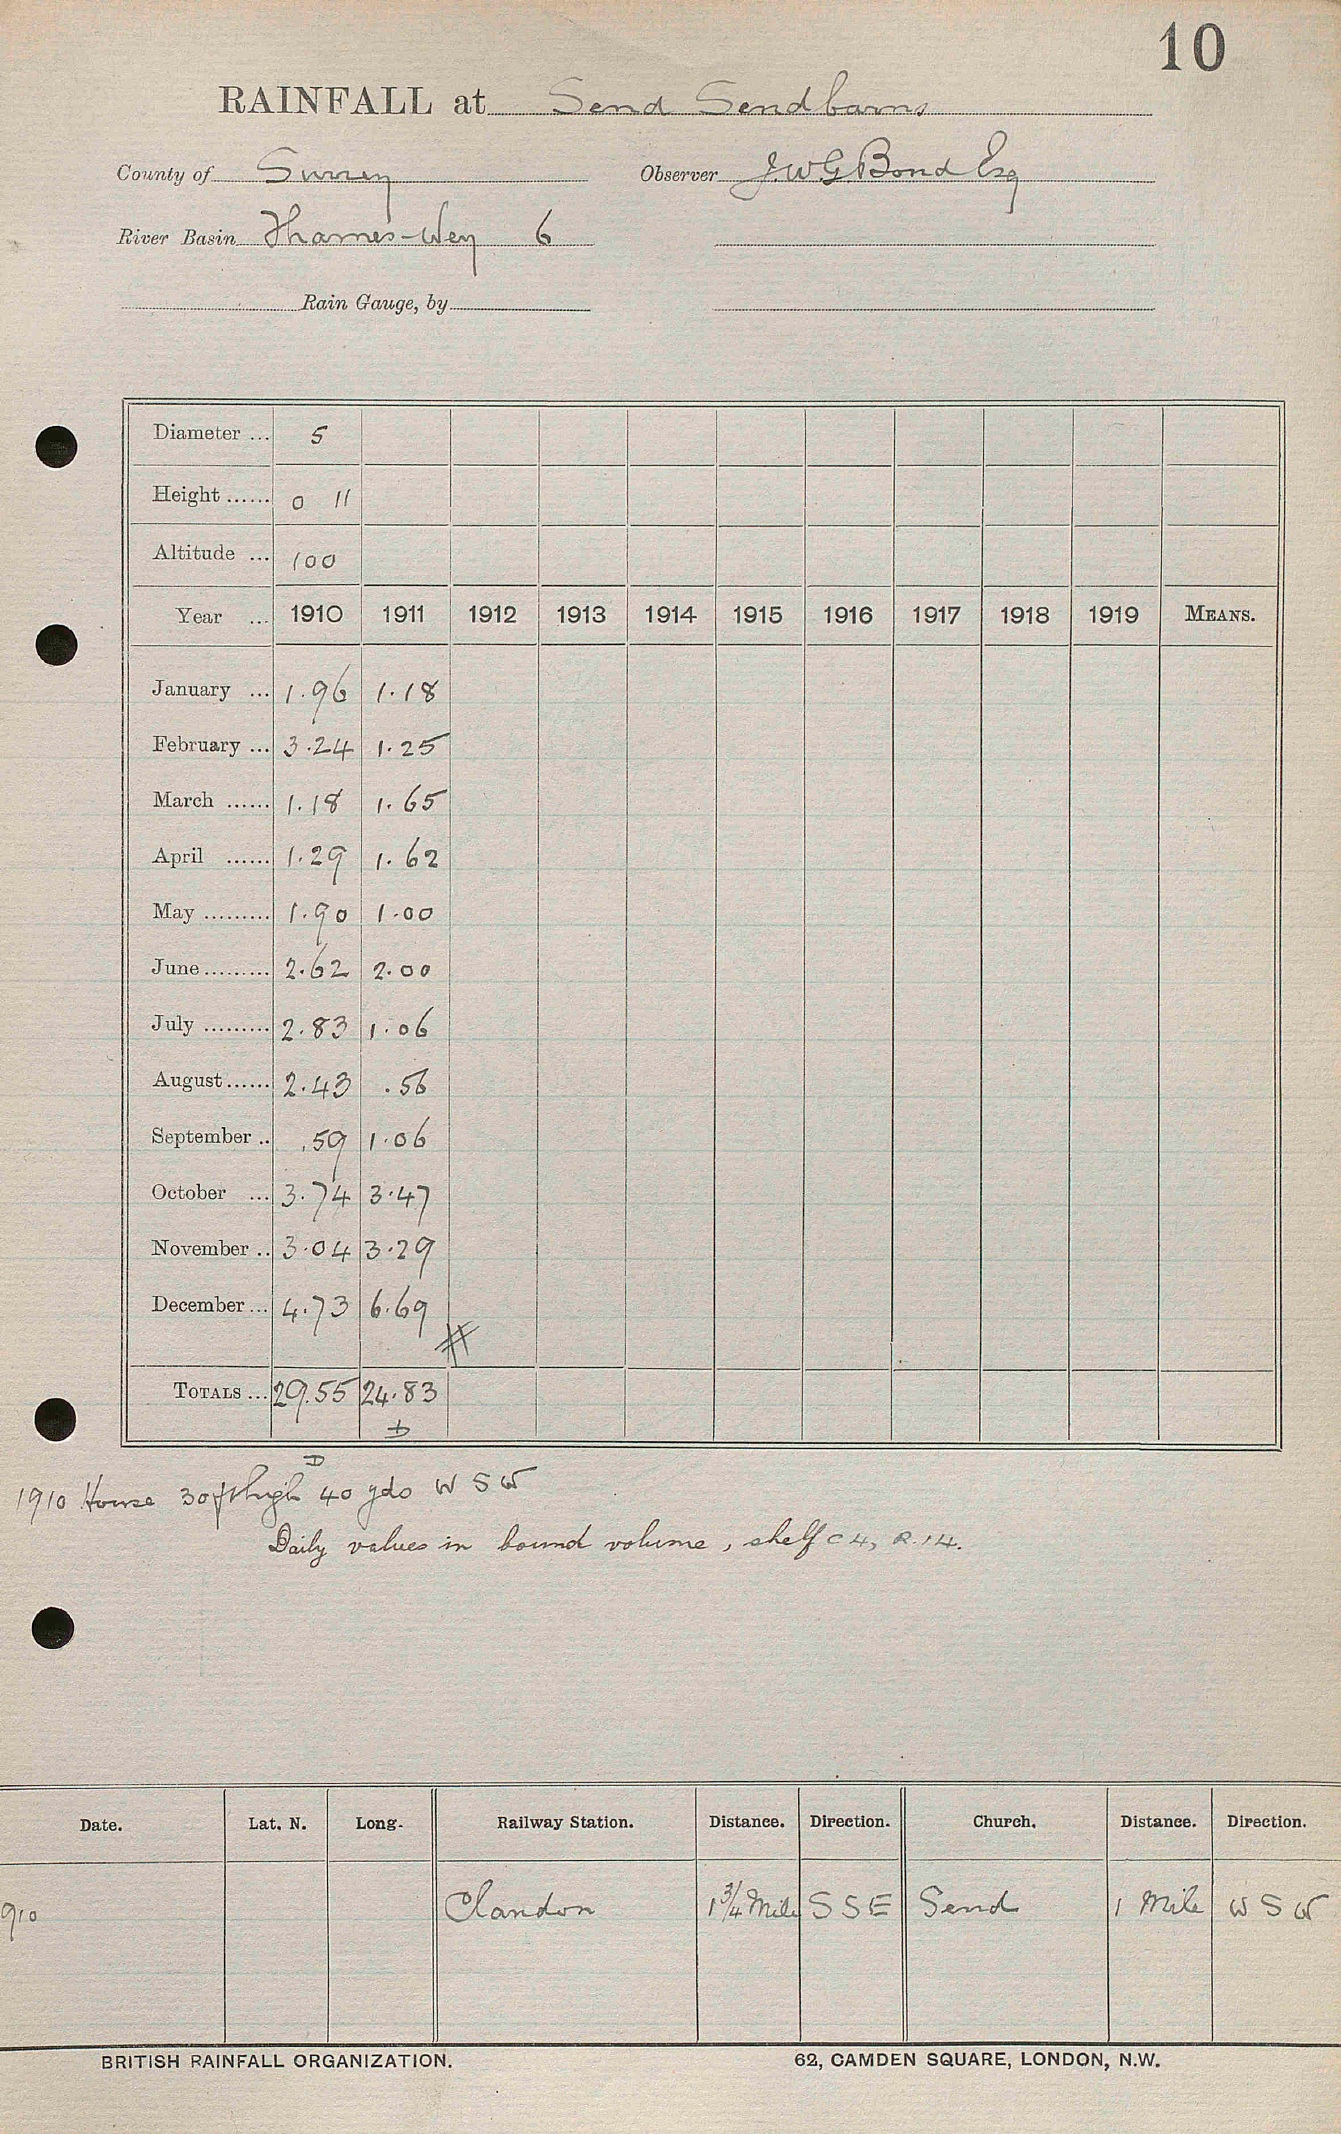 10
RAINFALL at Send Sendbarns
County of Surrey Observer J.W.G. Bond Esq
River Basin Thames-Wey 6
Rain Gauge, by
Diameter ... 5
Height ...... 0 11
Altitude ... 100
Year ... 1910 1911 1912 1913 1914 1915 1916 1917 1918 1919 MEANS.
January ... 1.96 1.18
February ... 3.24 1.25
March ...... 1.18 1.65
April ...... 1.29 1.62
May ......... 1.90 1.00
June ......... 2.62 2.00
July ......... 2.83 1.06
August ...... 2.43 .56
September .. .59 1.06
October ... 3.74 3.47
November .. 3.04 3.29
December ... 4.73 6.69
#
TOTALS ... 29.55 24.83
D
D
1910 House 30ft high 40 yds W S W
Daily values in bound volume, shelf C4, R.14.
Date. Lat. N. Long. Railway Station. Distance. Direction. Church. Distance. Direction.
910 Clandon 1 3/4 Mile S S E Send 1 Mile W S W
BRITISH RAINFALL ORGANIZATION. 62, CAMDEN SQUARE, LONDON, N.W.